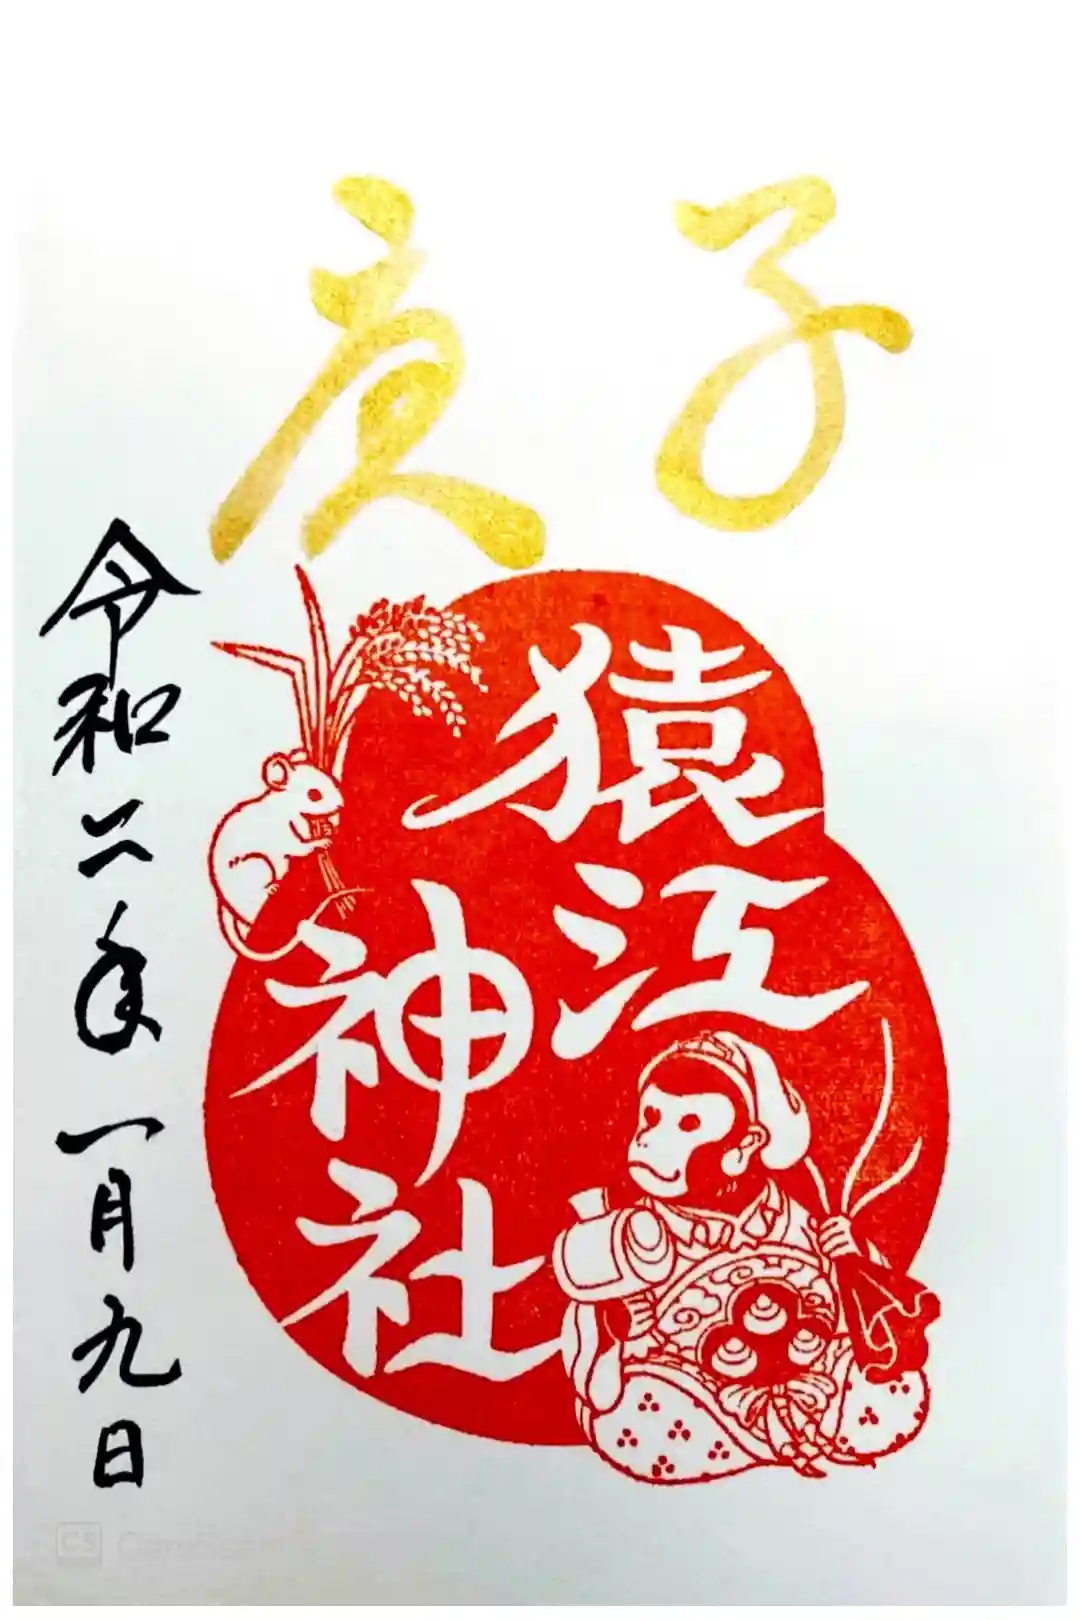 庚子
猿江
神社
令和二年一月九日
CS CamScanner